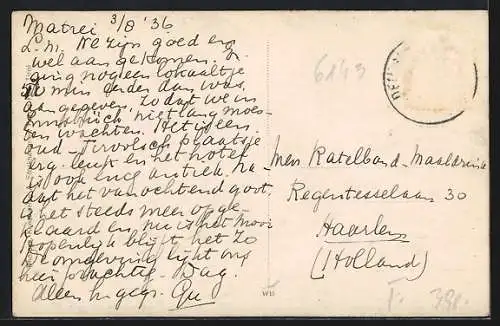 Matrei 3/8 '36
L. M. We zijn goed en
wel aangekomen. Er
ging nog een lokaaltje
50 min eerder dan was
aangegeven, zodat we in
Innsbrück niet lang moes-
ten wachten. Het is een
oud-Tirolsch plaatsje
erg leuk en het hotel
is ook erg antiek. Na-
dat het vanochtend goot,
is het steeds meer opge-
klaard en nu is het mooi
Hopenlijk blijft het zo
De omgeving lijkt ons
heel prachtig. Dag.
Allen h. gegr.
6143
Mevr. Katelband-
Regentesselaan 30
Haarlem
(Holland)